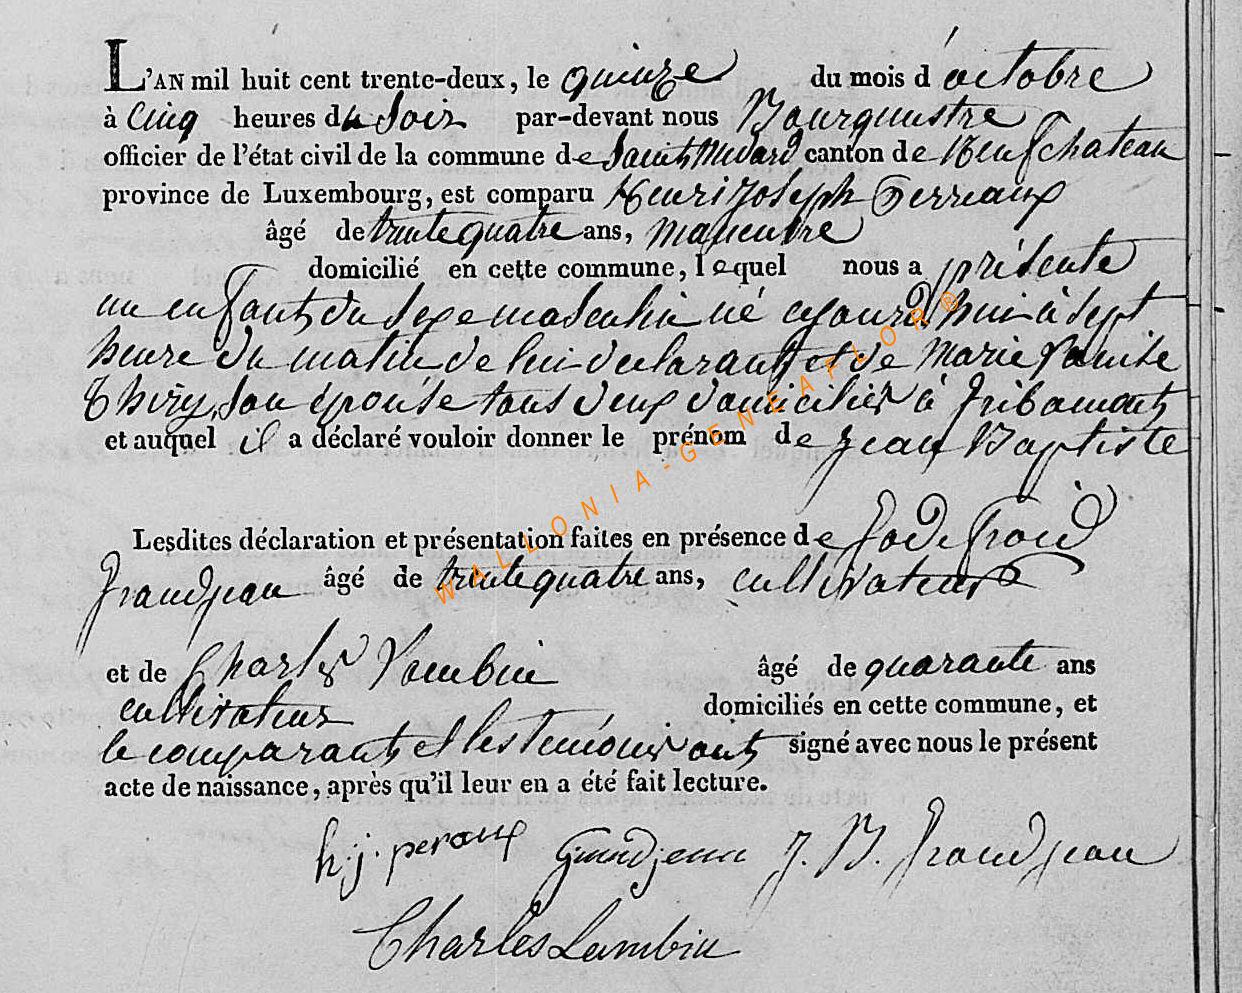 L'AN mil huit cent trente-deux, le quinze du mois d'octobre
à Cinq heures du Soir par-devant nous Bourgmestre
officier de l'état civil de la commune de Saint Médard canton de Neufchateau
province de Luxembourg, est comparu Henri Joseph Perreaux
âgé de trente quatre ans, manœuvre
domicilié en cette commune, lequel nous a présenté
un enfant du Sexe masculin né aujourd'hui à Sept
heure du matin de lui déclarant et de Marie Louise
Thiry, Son épouse tous deux domiciliés à Gribomont
et auquel il a déclaré vouloir donner le prénom de Jean Baptiste
Lesdites déclaration et présentation faites en présence de Godefroid
Grandjean âgé de trente quatre ans, cultivateur
et de Charles Lambin âgé de quarante ans
cultivateur domiciliés en cette commune, et
le comparant et les témoins ont signé avec nous le présent
acte de naissance, après qu'il leur en a été fait lecture.
h:j: peraux Grandjean J. B. Grandjean
Charles Lambin
WALLONIA-GENEAFLOR®